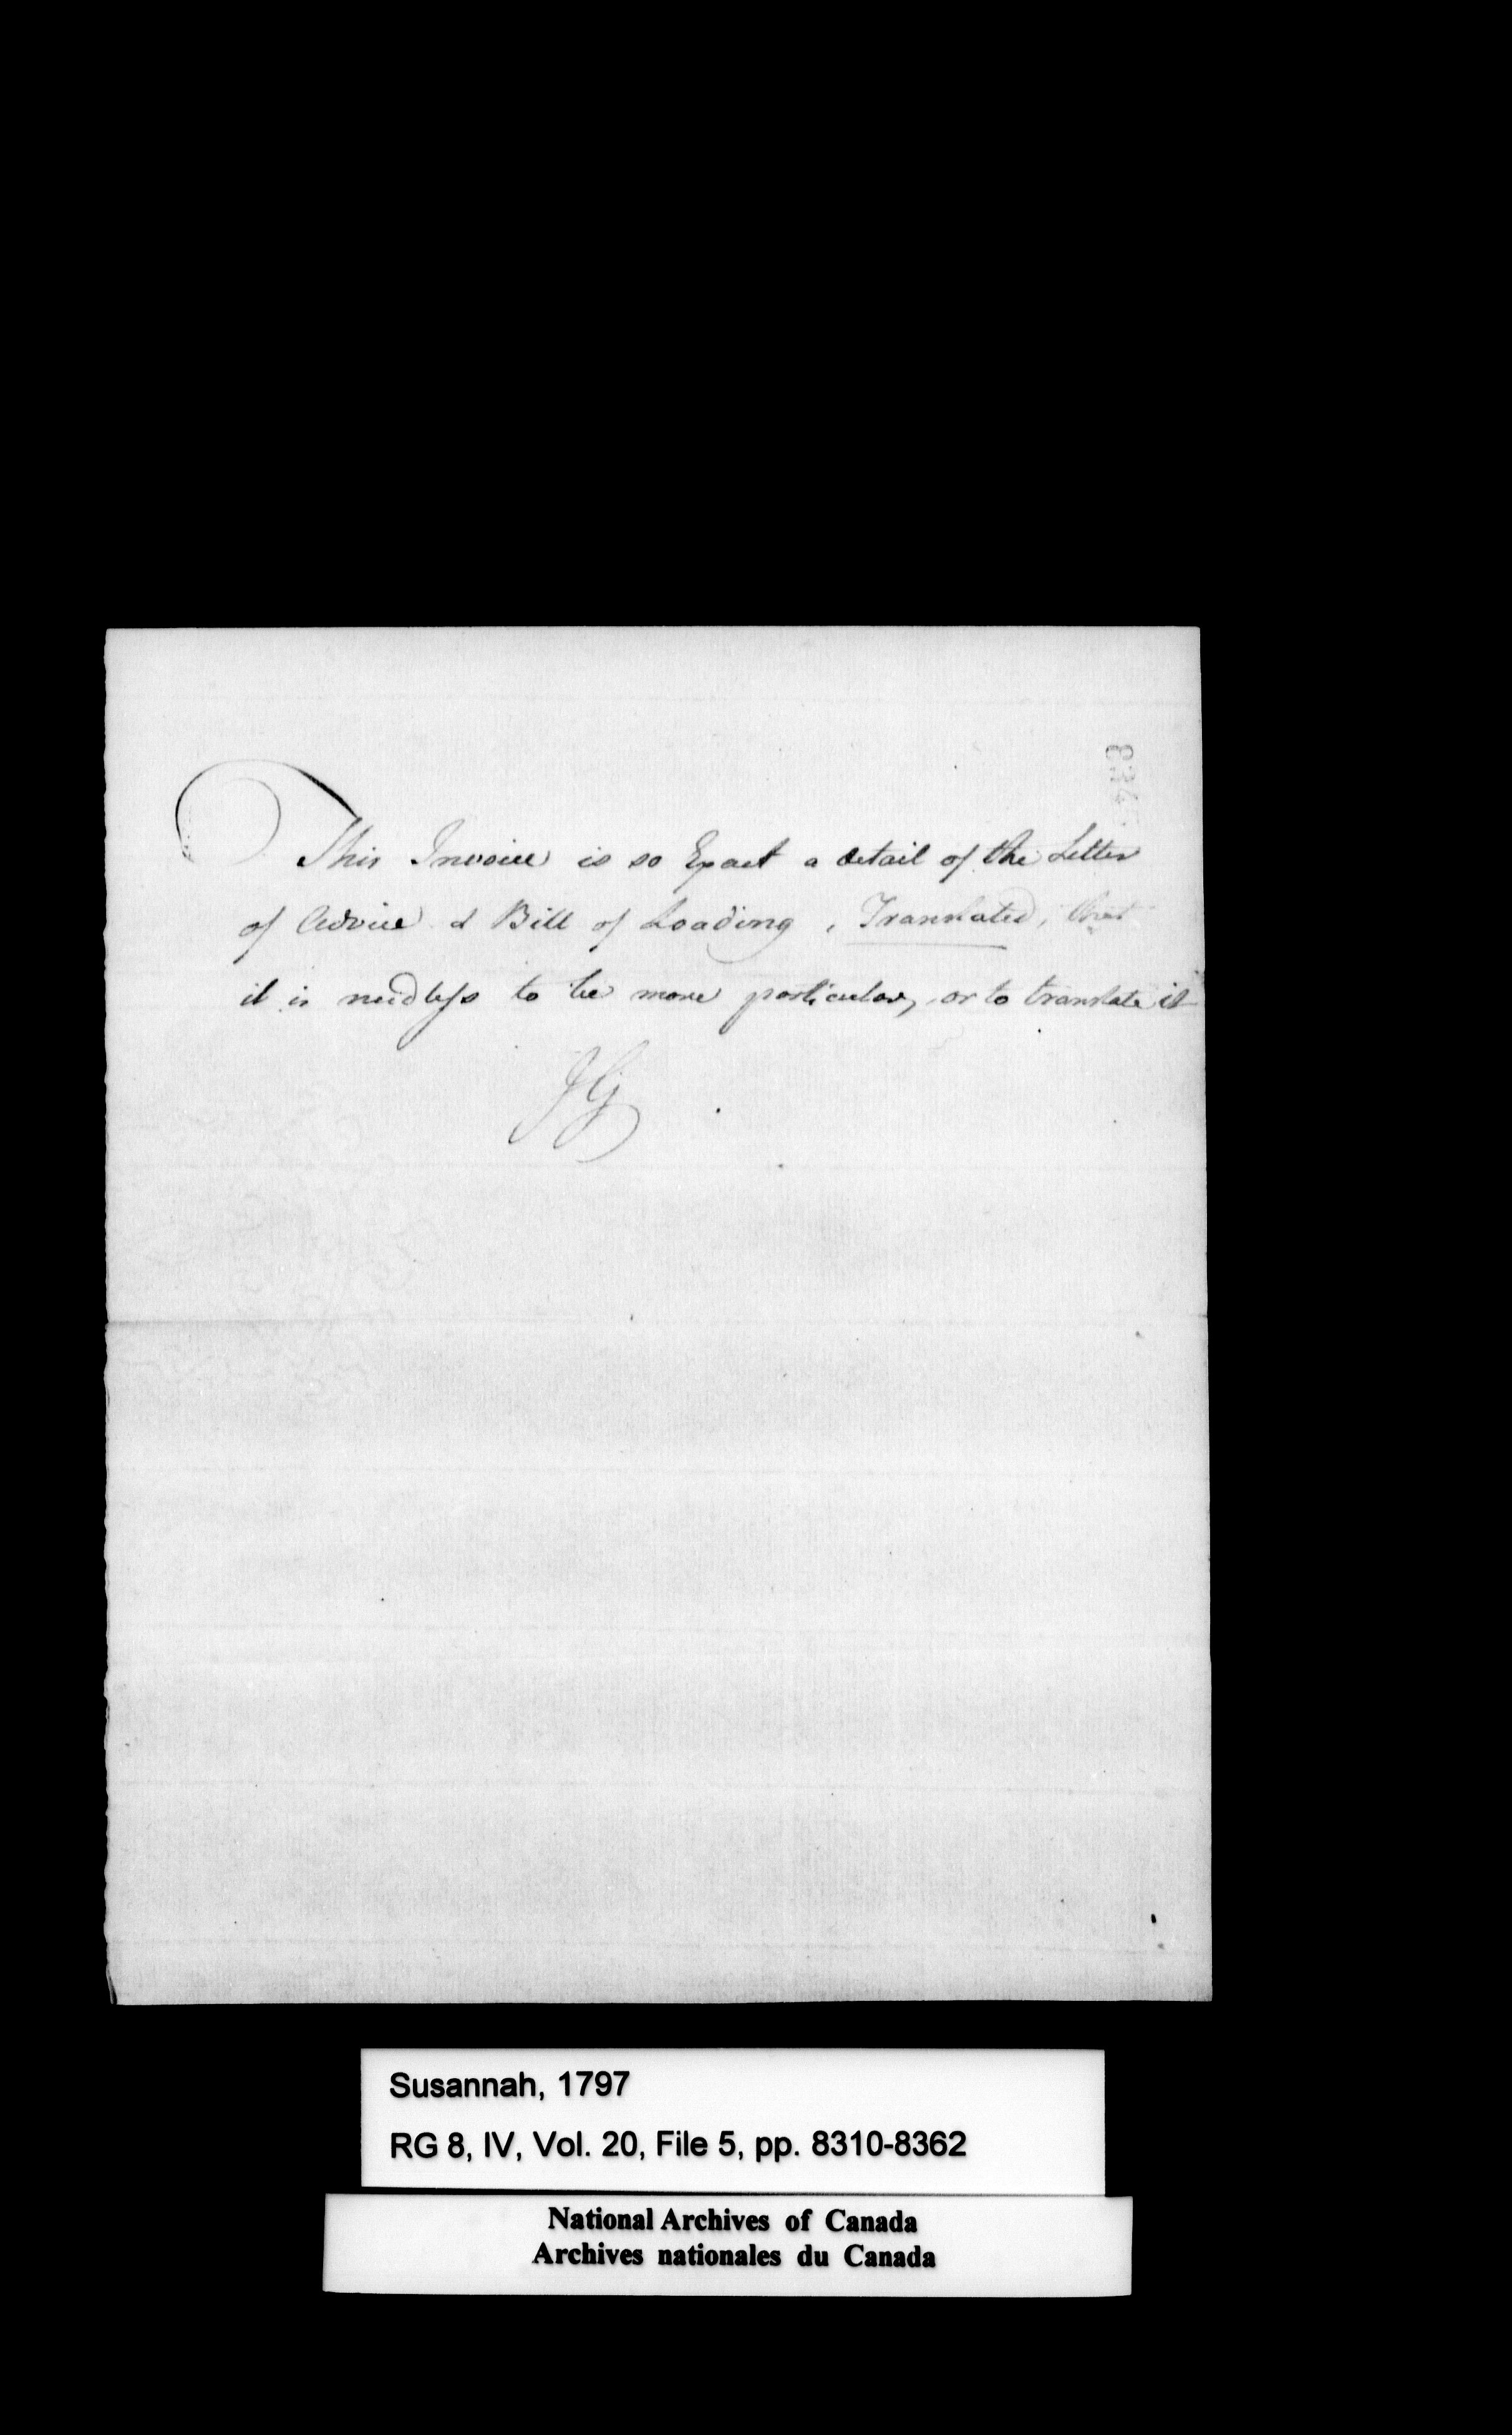 This Invoice is so Exact a detail of the Letter
of Advice & Bill of Loading, Translated, that
it is needless to be more particular, or to translate it
JG
Susannah, 1797
RG 8, IV, Vol. 20, File 5, pp. 8310-8362
National Archives of Canada
Archives nationales du Canada